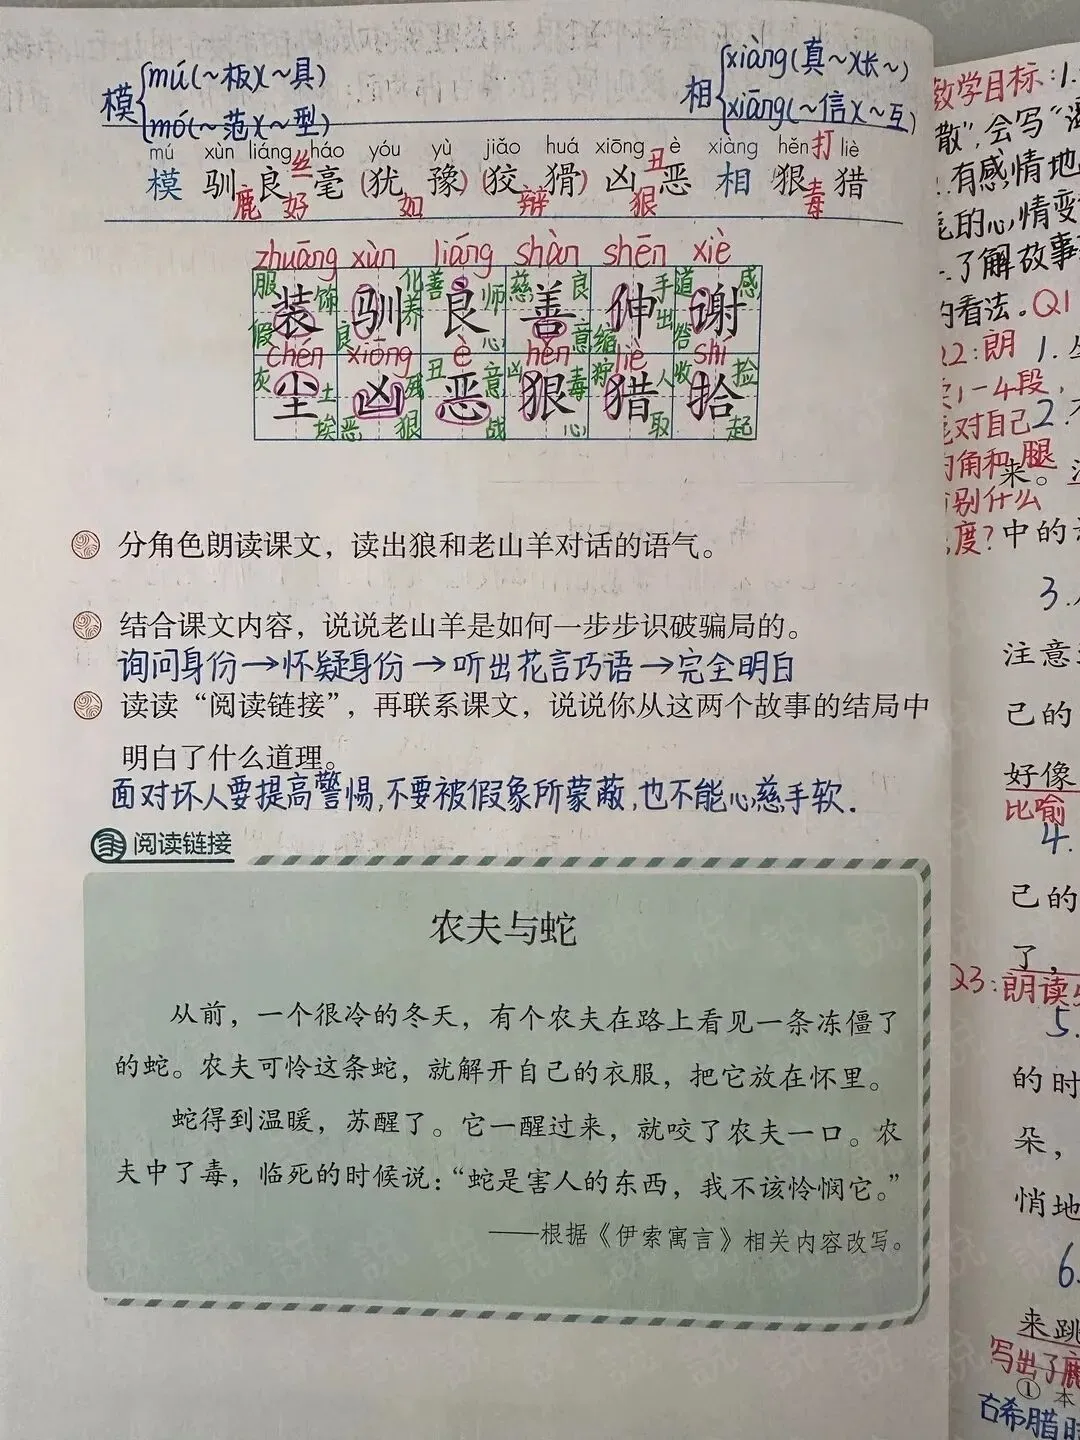 模 mú(~板)(~具) mó(~范)(~型)
相 xiàng(真~)(长~) xiāng(~信)(~互)
mú xùn liáng háo yóu yù jiǎo huá xiōng è xiàng hěn liè
模 驯 良 毫 (犹 豫) (狡 猾) 凶 恶 相 狠 猎
丝 丑 打
鹿 好 如 辩 狠 毒
zhuāng xùn liáng shàn shēn xiè
装 驯 良 善 伸 谢
服 饰 假 化 养 良 善 师 心 慈 良 意 手 出 缩 道 感 答
chén xiōng è hěn liè shí
尘 凶 恶 狠 猎 拾
灰 土 埃 残 恶 狠 丑 意 战 凶 毒 心 狩 人 取 收 捡 起
分角色朗读课文，读出狼和老山羊对话的语气。
结合课文内容，说说老山羊是如何一步步识破骗局的。
询问身份→怀疑身份→听出花言巧语→完全明白
读读“阅读链接”，再联系课文，说说你从这两个故事的结局中
明白了什么道理。
面对坏人要提高警惕,不要被假象所蒙蔽,也不能心慈手软.
阅读链接
农夫与蛇
从前，一个很冷的冬天，有个农夫在路上看见一条冻僵了
的蛇。农夫可怜这条蛇，就解开自己的衣服，把它放在怀里。
蛇得到温暖，苏醒了。它一醒过来，就咬了农夫一口。农
夫中了毒，临死的时候说：“蛇是害人的东西，我不该怜悯它。”
——根据《伊索寓言》相关内容改写。
教学目标:1.
散”,会写“
有感情地
的心情变
了解故事
的看法。Q1
Q2:朗 1.
1-4段,
对自己 2.
的角和腿
来。
别什么
度? 中的
3.
注意
己的
好像
比喻
4.
己的
了，
Q3:朗读
5.
的时
朵，
悄地
6.
来跳
写出了鹿
① 本
古希腊时